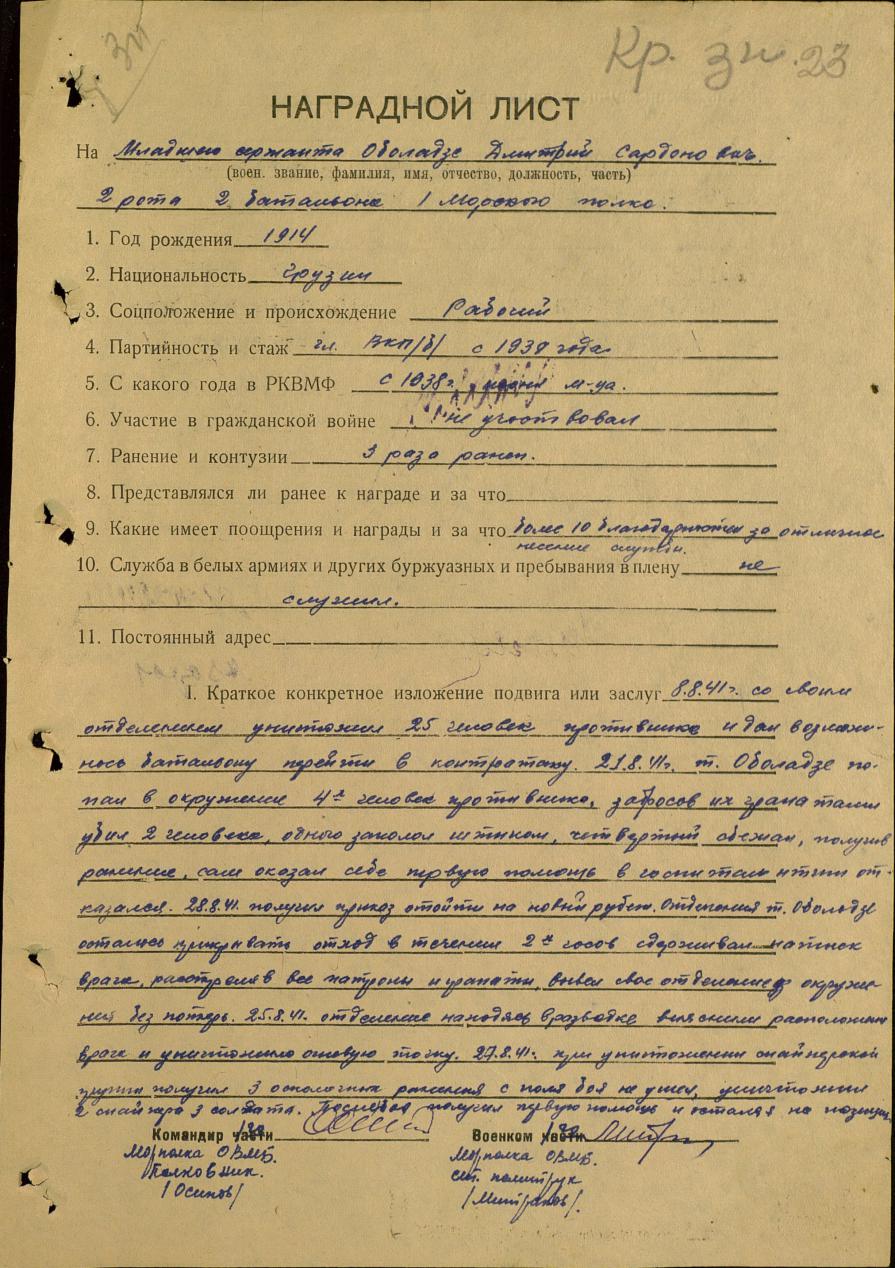 Кр. зн. 23
НАГРАДНОЙ ЛИСТ
На Младшего сержанта Оболадзе Дмитрий Сардонович.
(воен. звание, фамилия, имя, отчество, должность, часть)
2 рота 2 батальона 1 Морского полка.
1. Год рождения 1914
2. Национальность грузин
3. Соцположение и происхождение Рабочий
4. Партийность и стаж чл. ВКП/б/ с 1939 года
5. С какого года в РКВМФ с 1938г. м-ца.
6. Участие в гражданской войне не участвовал
7. Ранение и контузии 3 раза ранен.
8. Представлялся ли ранее к награде и за что
9. Какие имеет поощрения и награды и за что более 10 благодарностей за отличное
несение службы.
10. Служба в белых армиях и других буржуазных и пребывания в плену не
служил.
11. Постоянный адрес
I. Краткое конкретное изложение подвига или заслуг 8.8.41г. со своим
отделением уничтожил 25 человек противника и дал возмож-
нось батальону перейти в контратаку. 21.8.41г. т. Оболадзе по-
пал в окружение 4х человек противника, забросов их гранатами
убил 2 человека, одного заколол штыком, четвертый сбежал, получив
ранение, сам оказал себе первую помощь в госпиталь итти от-
казался. 28.8.41. получил приказ отойти на новый рубеж. Отделения т. Оболадзе
осталось прикрывать отход в течении 2х часов сдерживал натиск
врага, расстреляв все патроны и гранаты, вывел свое отделение из окруже-
ния без потерь. 25.8.41. отделение находясь в разведке выяснили расположения
врага и уничтожило огневую точку. 27.8.41г. при уничтожении снайперской
группы получил 3 осколочных ранения с поля боя не ушел, уничтожил
2 снайпера 3 солдата. получил первую помощь и остался на позиции
Командир части Военком части
Морполка ОВМБ. Морполка ОВМБ.
Полковник. ст. политрук
/Осипов/ /Митраков/.